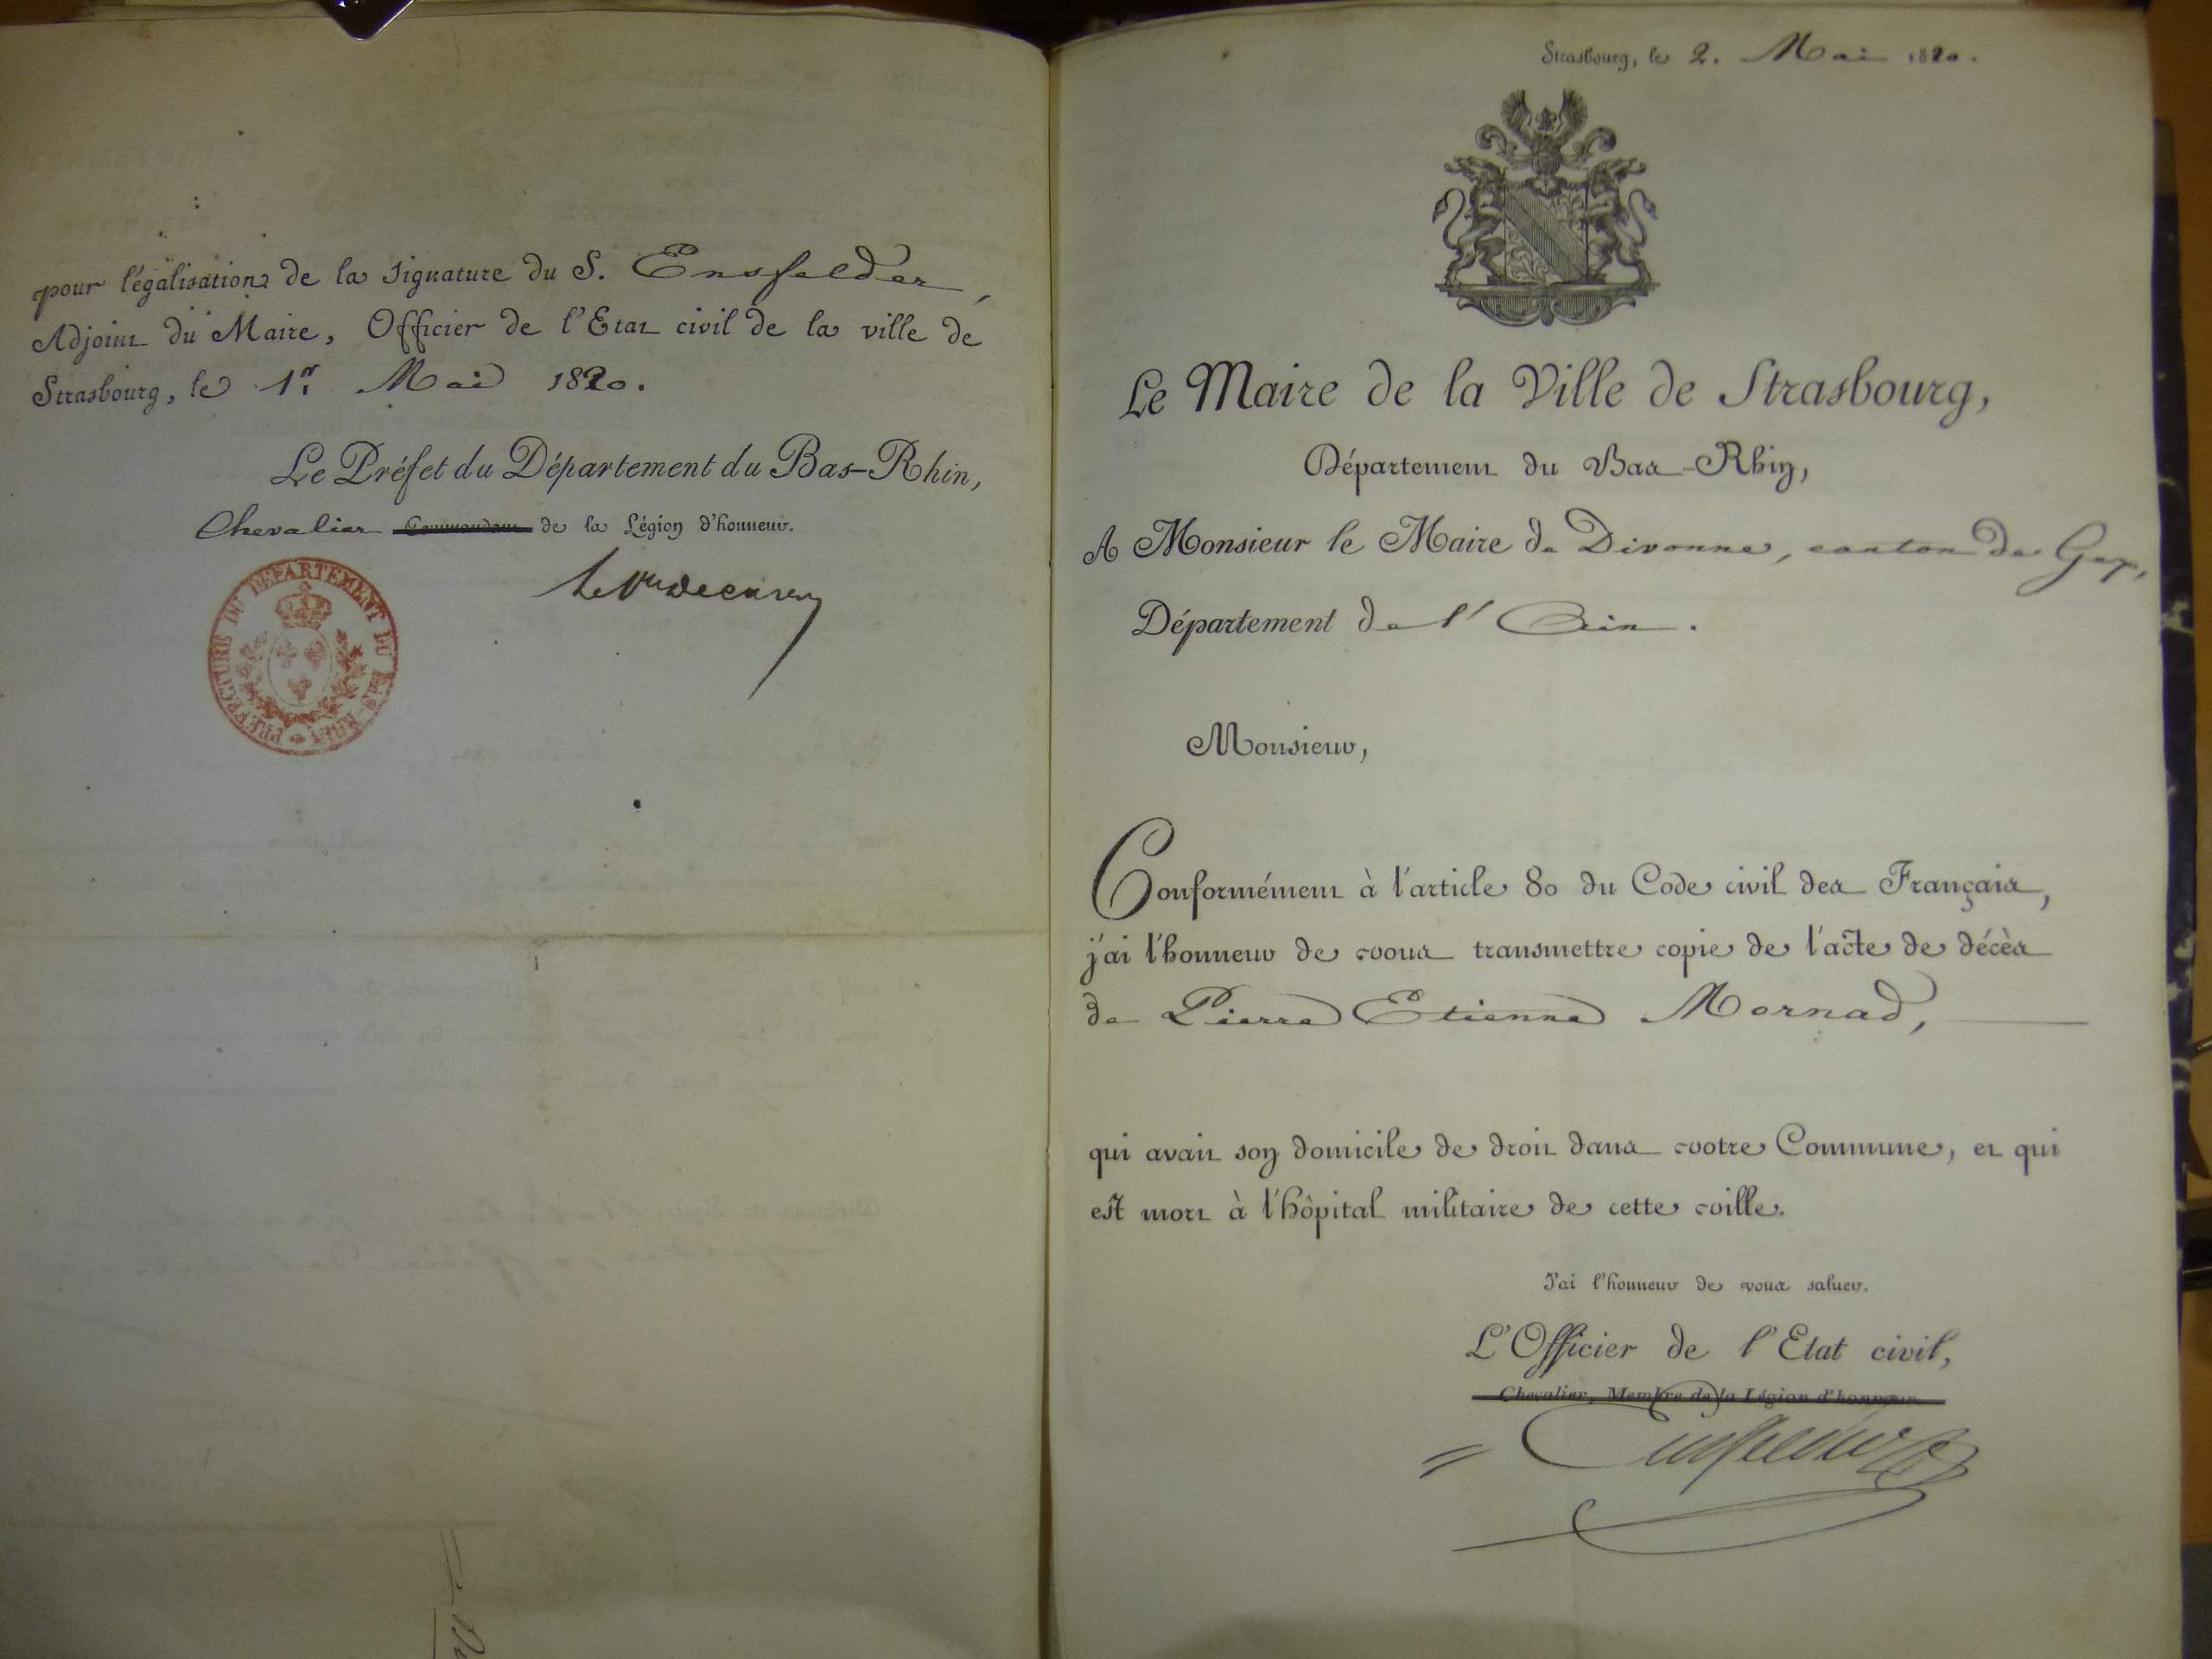 pour légalisation de la signature du S. Ensfelder,
Adjoint du Maire, Officier de l'Etat civil de la ville de
Strasbourg, le 1.er Mai 1820.
Le Préfet du Département du Bas-Rhin,
Chevalier Commandant de la Légion d'honneur.
PRÉFECTURE DU DÉPARTEMENT DU BAS-RHIN
Strasbourg, le 2. Mai 1820.
Le Maire de la Ville de Strasbourg,
Département du Bas-Rhin,
A Monsieur le Maire de Divonne, canton de Gex,
Département de l'Ain.
Monsieur,
Conformément à l'article 80 du Code civil des Français,
j'ai l'honneur de vous transmettre copie de l'acte de décès
de Pierre Etienne Mornad,
qui avait son domicile de droit dans votre Commune, et qui
est mort à l'hôpital militaire de cette ville.
J'ai l'honneur de vous saluer.
L'Officier de l'Etat civil,
Chevalier, Membre de la Légion d'honneur
Ensfelder